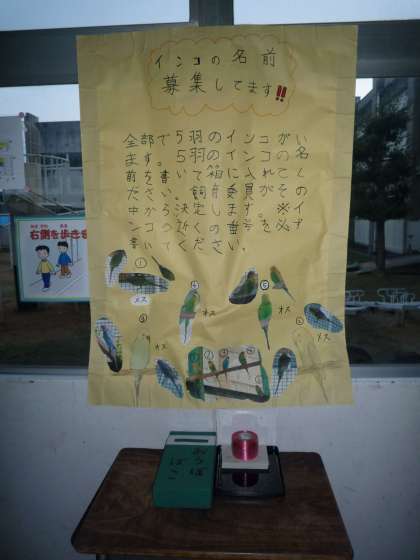 インコの名前
募集してます!!
全部で5羽のインコがい
ます。5羽のインコの名
前を書いて箱に入れてく
ださい。飼育委員がその
中から決定します。※イ
ンコの番号を必ず
書いてください。
①
メス
④
オス
⑤
オス
③
②
メス
右側を歩き
おうぼ
ばこ